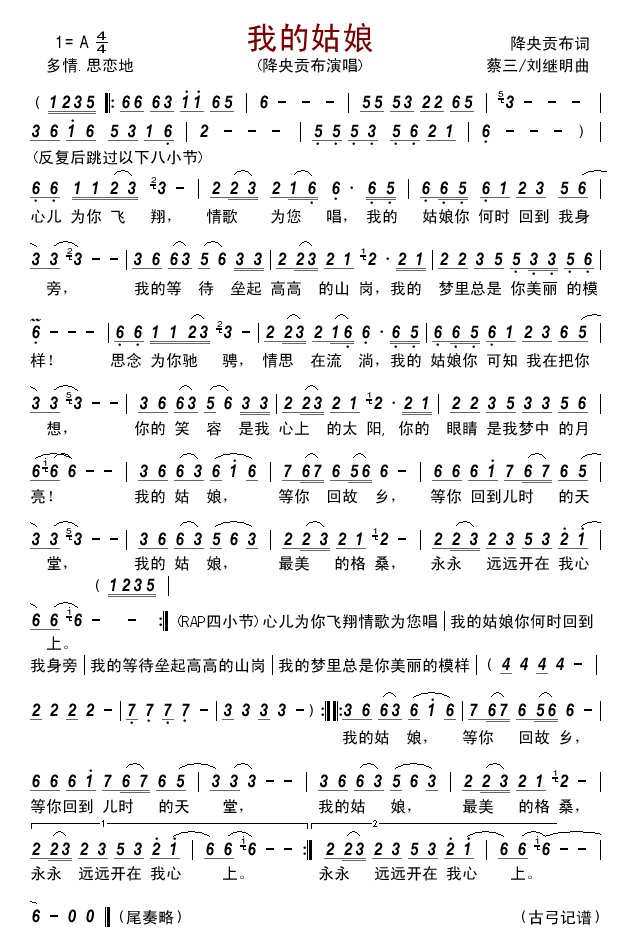 我的姑娘
1= A 4/4
降央贡布词
多情.思恋地
(降央贡布演唱)
蔡三/刘继明曲
( 1235 |: 66 63 11 65 | 6 - - - | 55 53 22 65 | 5 3 - - - |
36 16 53 16 | 2 - - - | 55 53 56 21 | 6 - - - ) |
(反复后跳过以下八小节)
66 1123 2 3 - | 223 216 6· 65 | 665 61 23 56 |
心儿 为你 飞 翔， 情歌 为您 唱，我的 姑娘你 何时 回到 我身
33 2 3 - - | 36 63 56 33 | 223 21 1 2· 21 | 22 35 533 56 |
旁， 我的等 待 垒起 高高 的山 岗，我的 梦里总是 你美丽 的模
6 - - - | 66 1123 2 3 - | 223 216 6· 65 | 665 61 23 65 |
样！ 思念 为你驰 骋，情思 在流 淌，我的 姑娘你 可知 我在把你
33 5 3 - - | 36 63 56 33 | 223 21 1 2· 21 | 22 35 33 56 |
想， 你的 笑 容 是我 心上 的太 阳，你的 眼睛 是我梦中 的月
6 1 6 6 - - | 36 63 616 | 767 656 6 - | 66 61 767 65 |
亮！ 我的 姑 娘， 等你 回故 乡， 等你 回到儿时 的天
33 5 3 - - | 36 63 563 | 223 21 1 2 - | 223 23 53 21 |
堂， 我的 姑 娘， 最美 的格 桑， 永远 远远开在 我心
( 1235 |
66 1 6 - - :| (RAP四小节)心儿为你飞翔情歌为您唱|我的姑娘你何时回到
上。
我身旁|我的等待垒起高高的山岗|我的梦里总是你美丽的模样| ( 4 4 4 - |
2 2 2 2 - | 7 7 7 7 - | 3 3 3 3 - ) :||: 36 63 616 | 767 656 6 - |
我的姑 娘， 等你 回故 乡，
66 61 767 65 | 33 3 - - | 36 63 563 | 223 21 1 2 - |
等你回到 儿时 的天 堂， 我的姑 娘， 最美 的格 桑，
1 2
223 23 53 21 | 66 1 6 - - :| 223 23 53 21 | 66 1 6 - - |
永远 远远开在 我心 上。 永远 远远开在 我心 上。
6 - 0 0 || (尾奏略)
(古弓记谱)